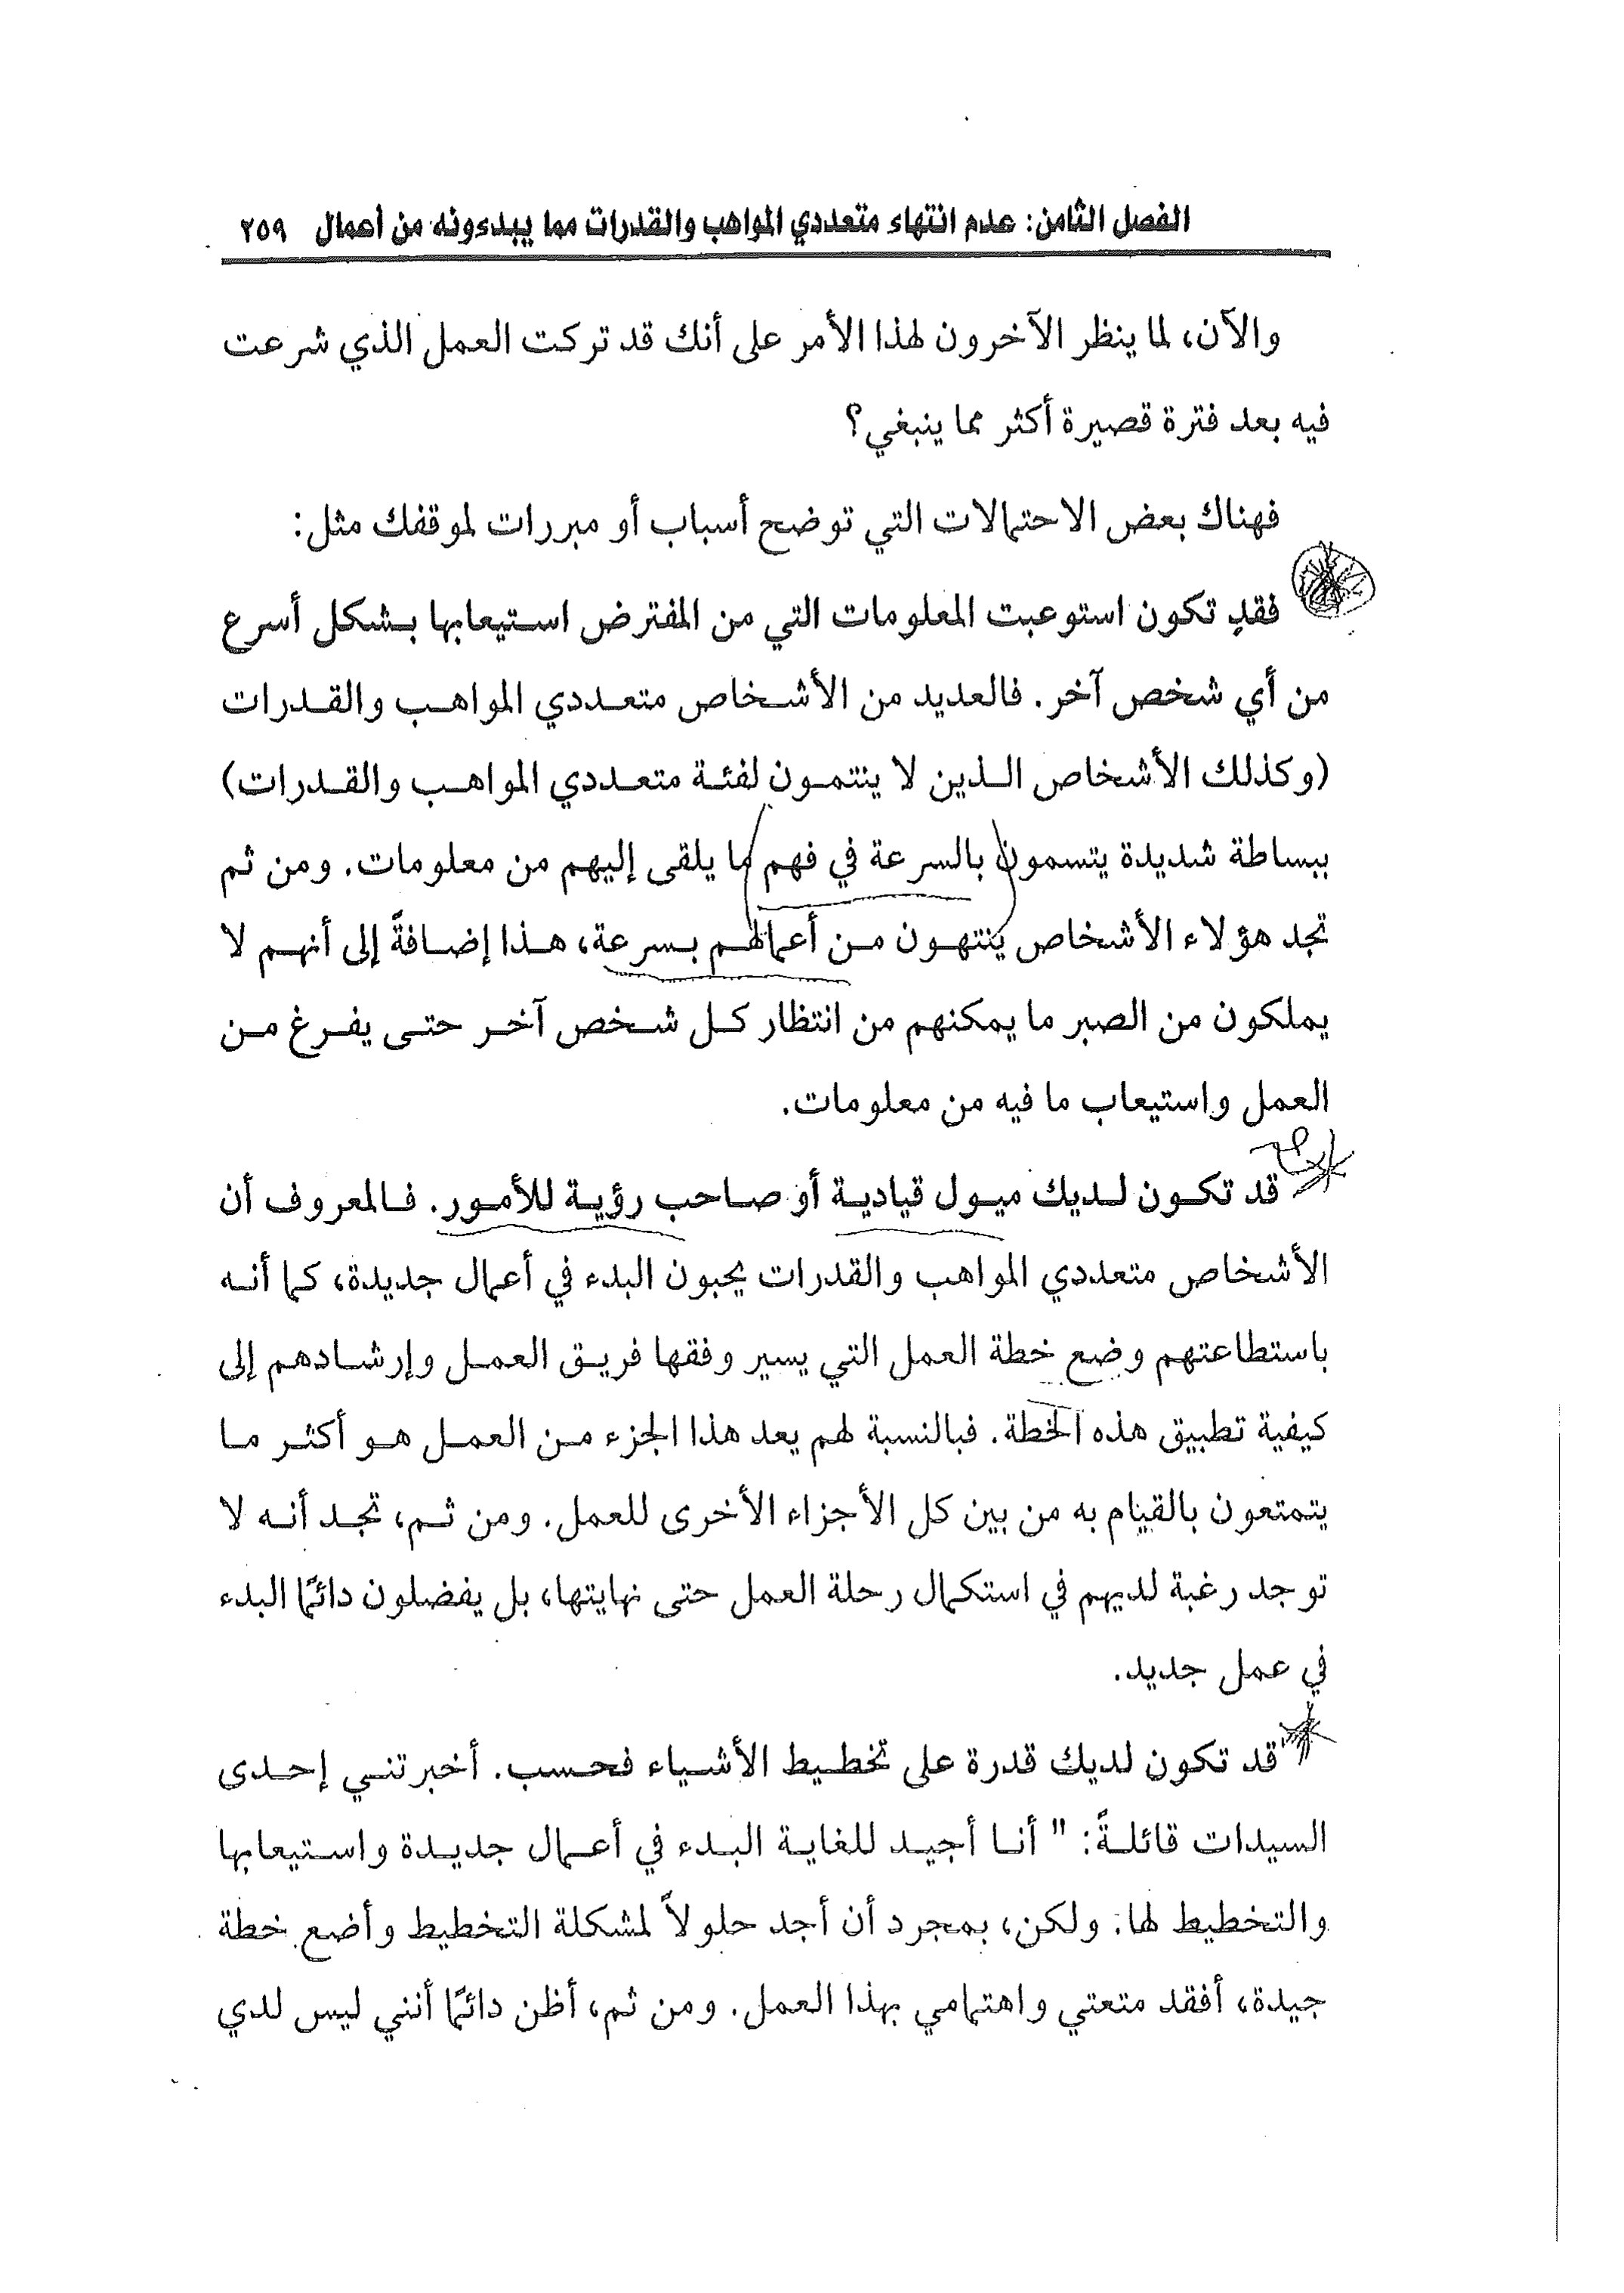 الفصل الثامن: عدم انتهاء متعددي المواهب والقدرات مما يبدءونه من أعمال ٢٥٩
والآن، لما ينظر الآخرون لهذا الأمر على أنك قد تركت العمل الذي شرعت
فيه بعد فترة قصيرة أكثر مما ينبغي؟
فهناك بعض الاحتمالات التي توضح أسباب أو مبررات لموقفك مثل:
فقد تكون استوعبت المعلومات التي من المفترض استيعابها بشكل أسرع
من أي شخص آخر. فالعديد من الأشخاص متعددي المواهب والقدرات
(وكذلك الأشخاص الذين لا ينتمون لفئة متعددي المواهب والقدرات)
ببساطة شديدة يتسمون بالسرعة في فهم ما يلقى إليهم من معلومات. ومن ثم
تجد هؤلاء الأشخاص ينتهون من أعمالهم بسرعة، هذا إضافةً إلى أنهم لا
يملكون من الصبر ما يمكنهم من انتظار كل شخص آخر حتى يفرغ من
العمل واستيعاب ما فيه من معلومات.
قد تكون لديك ميول قيادية أو صاحب رؤية للأمور. فالمعروف أن
الأشخاص متعددي المواهب والقدرات يحبون البدء في أعمال جديدة، كما أنه
باستطاعتهم وضع خطة العمل التي يسير وفقها فريق العمل وإرشادهم إلى
كيفية تطبيق هذه الخطة. فبالنسبة لهم يعد هذا الجزء من العمل هو أكثر ما
يتمتعون بالقيام به من بين كل الأجزاء الأخرى للعمل. ومن ثم، تجد أنه لا
توجد رغبة لديهم في استكمال رحلة العمل حتى نهايتها، بل يفضلون دائمًا البدء
في عمل جديد.
قد تكون لديك قدرة على تخطيط الأشياء فحسب. أخبرتني إحدى
السيدات قائلةً: " أنا أجيد للغاية البدء في أعمال جديدة واستيعابها
والتخطيط لها. ولكن، بمجرد أن أجد حلولاً لمشكلة التخطيط وأضع خطة
جيدة، أفقد متعتي واهتمامي بهذا العمل. ومن ثم، أظن دائمًا أنني ليس لدي